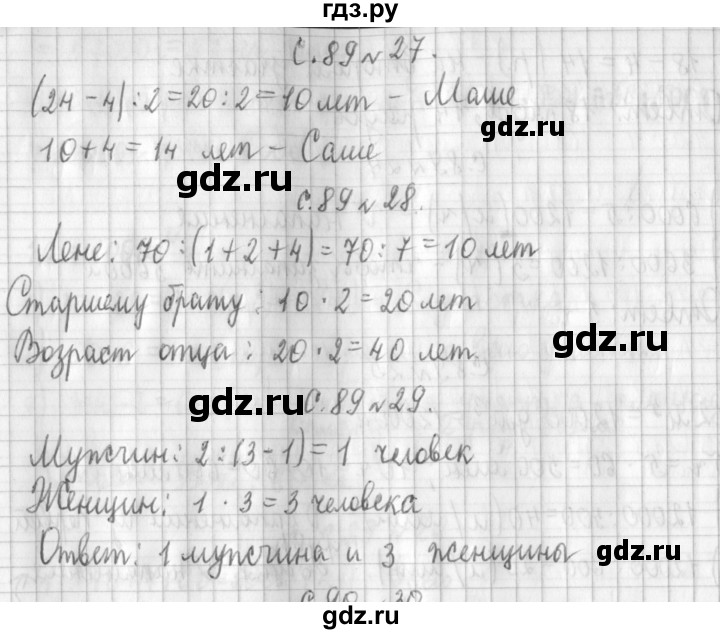 гдз.ру
с.89 № 27.
(24 - 4) : 2 = 20 : 2 = 10 лет - Маше
gdz.ru
10 + 4 = 14 лет - Саше
gdz.ru
с.89 № 28.
Лене: 70 : (1 + 2 + 4) = 70 : 7 = 10 лет
Старшему брату: 10 · 2 = 20 лет
Возраст отца: 20 · 2 = 40 лет.
gdz.ru
gdz.ru
с.89 № 29.
Мужчин: 2 : (3 - 1) = 1 человек
Женщин: 1 · 3 = 3 человека
Ответ: 1 мужчина и 3 женщины
gdz.ru
с.90 30
gdz.ru